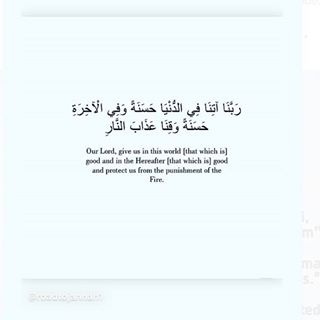 رَبَّنَا آتِنَا فِي الدُّنْيَا حَسَنَةً وَفِي الْآخِرَةِ
حَسَنَةً وَقِنَا عَذَابَ النَّارِ
Our Lord, give us in this world [that which is]
good and in the Hereafter [that which is] good
and protect us from the punishment of the
Fire.